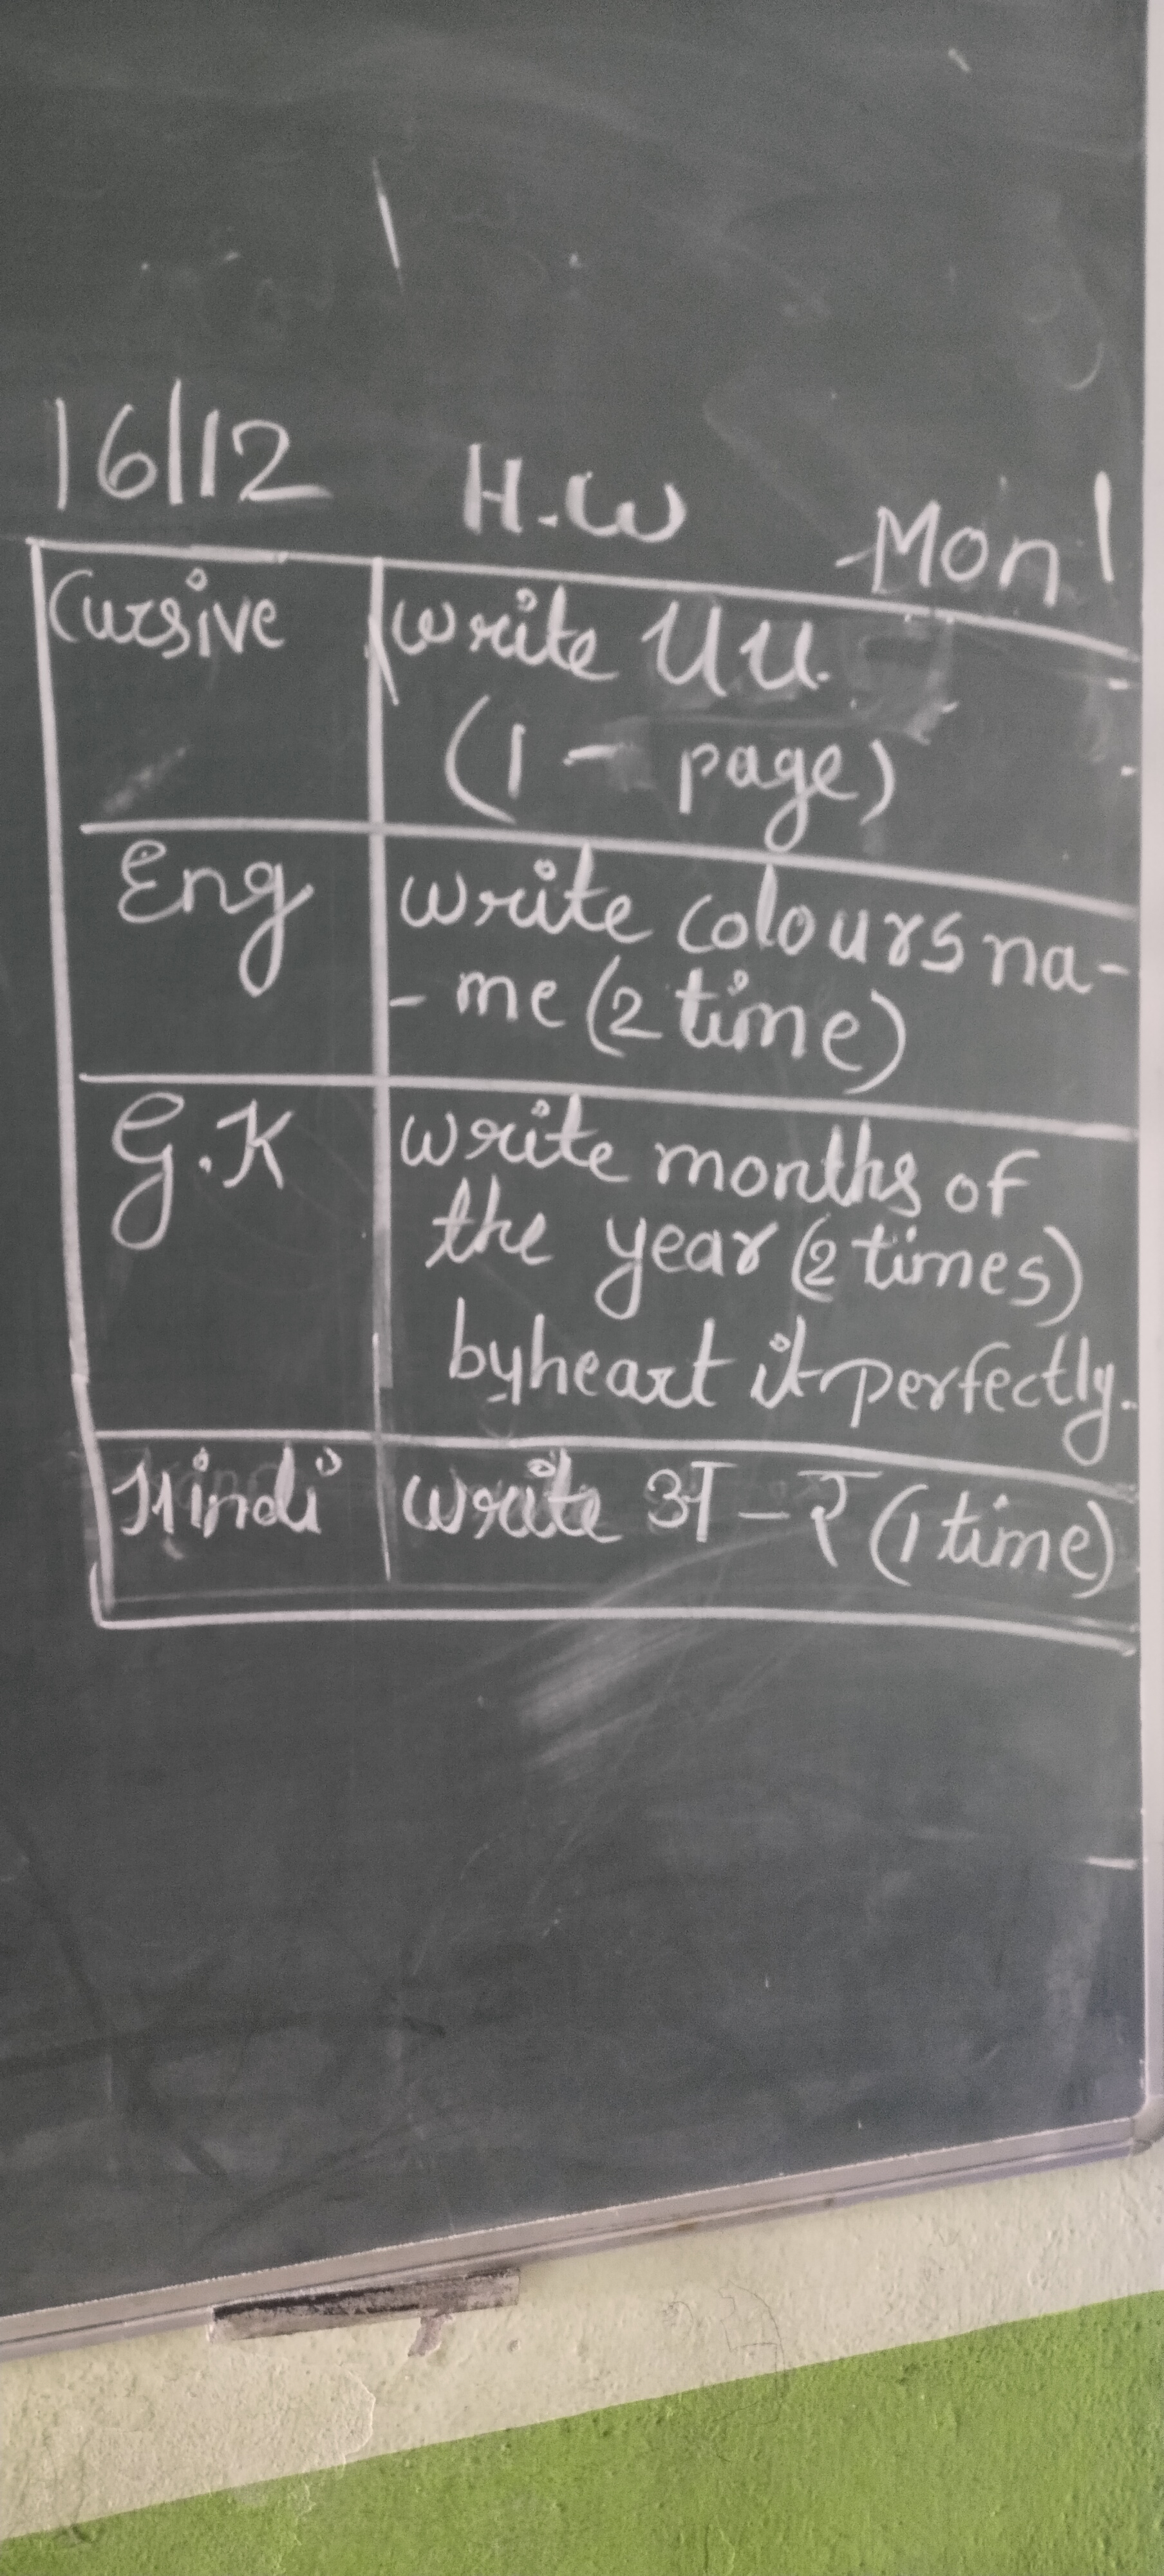 16/12 H.W Mon
Cursive write U u.
(1 - page)
Eng write colours na-
- me (2 time)
G.K write months of
the year (2 times)
byheart it perfectly.
Hindi write अ - र (1 time)